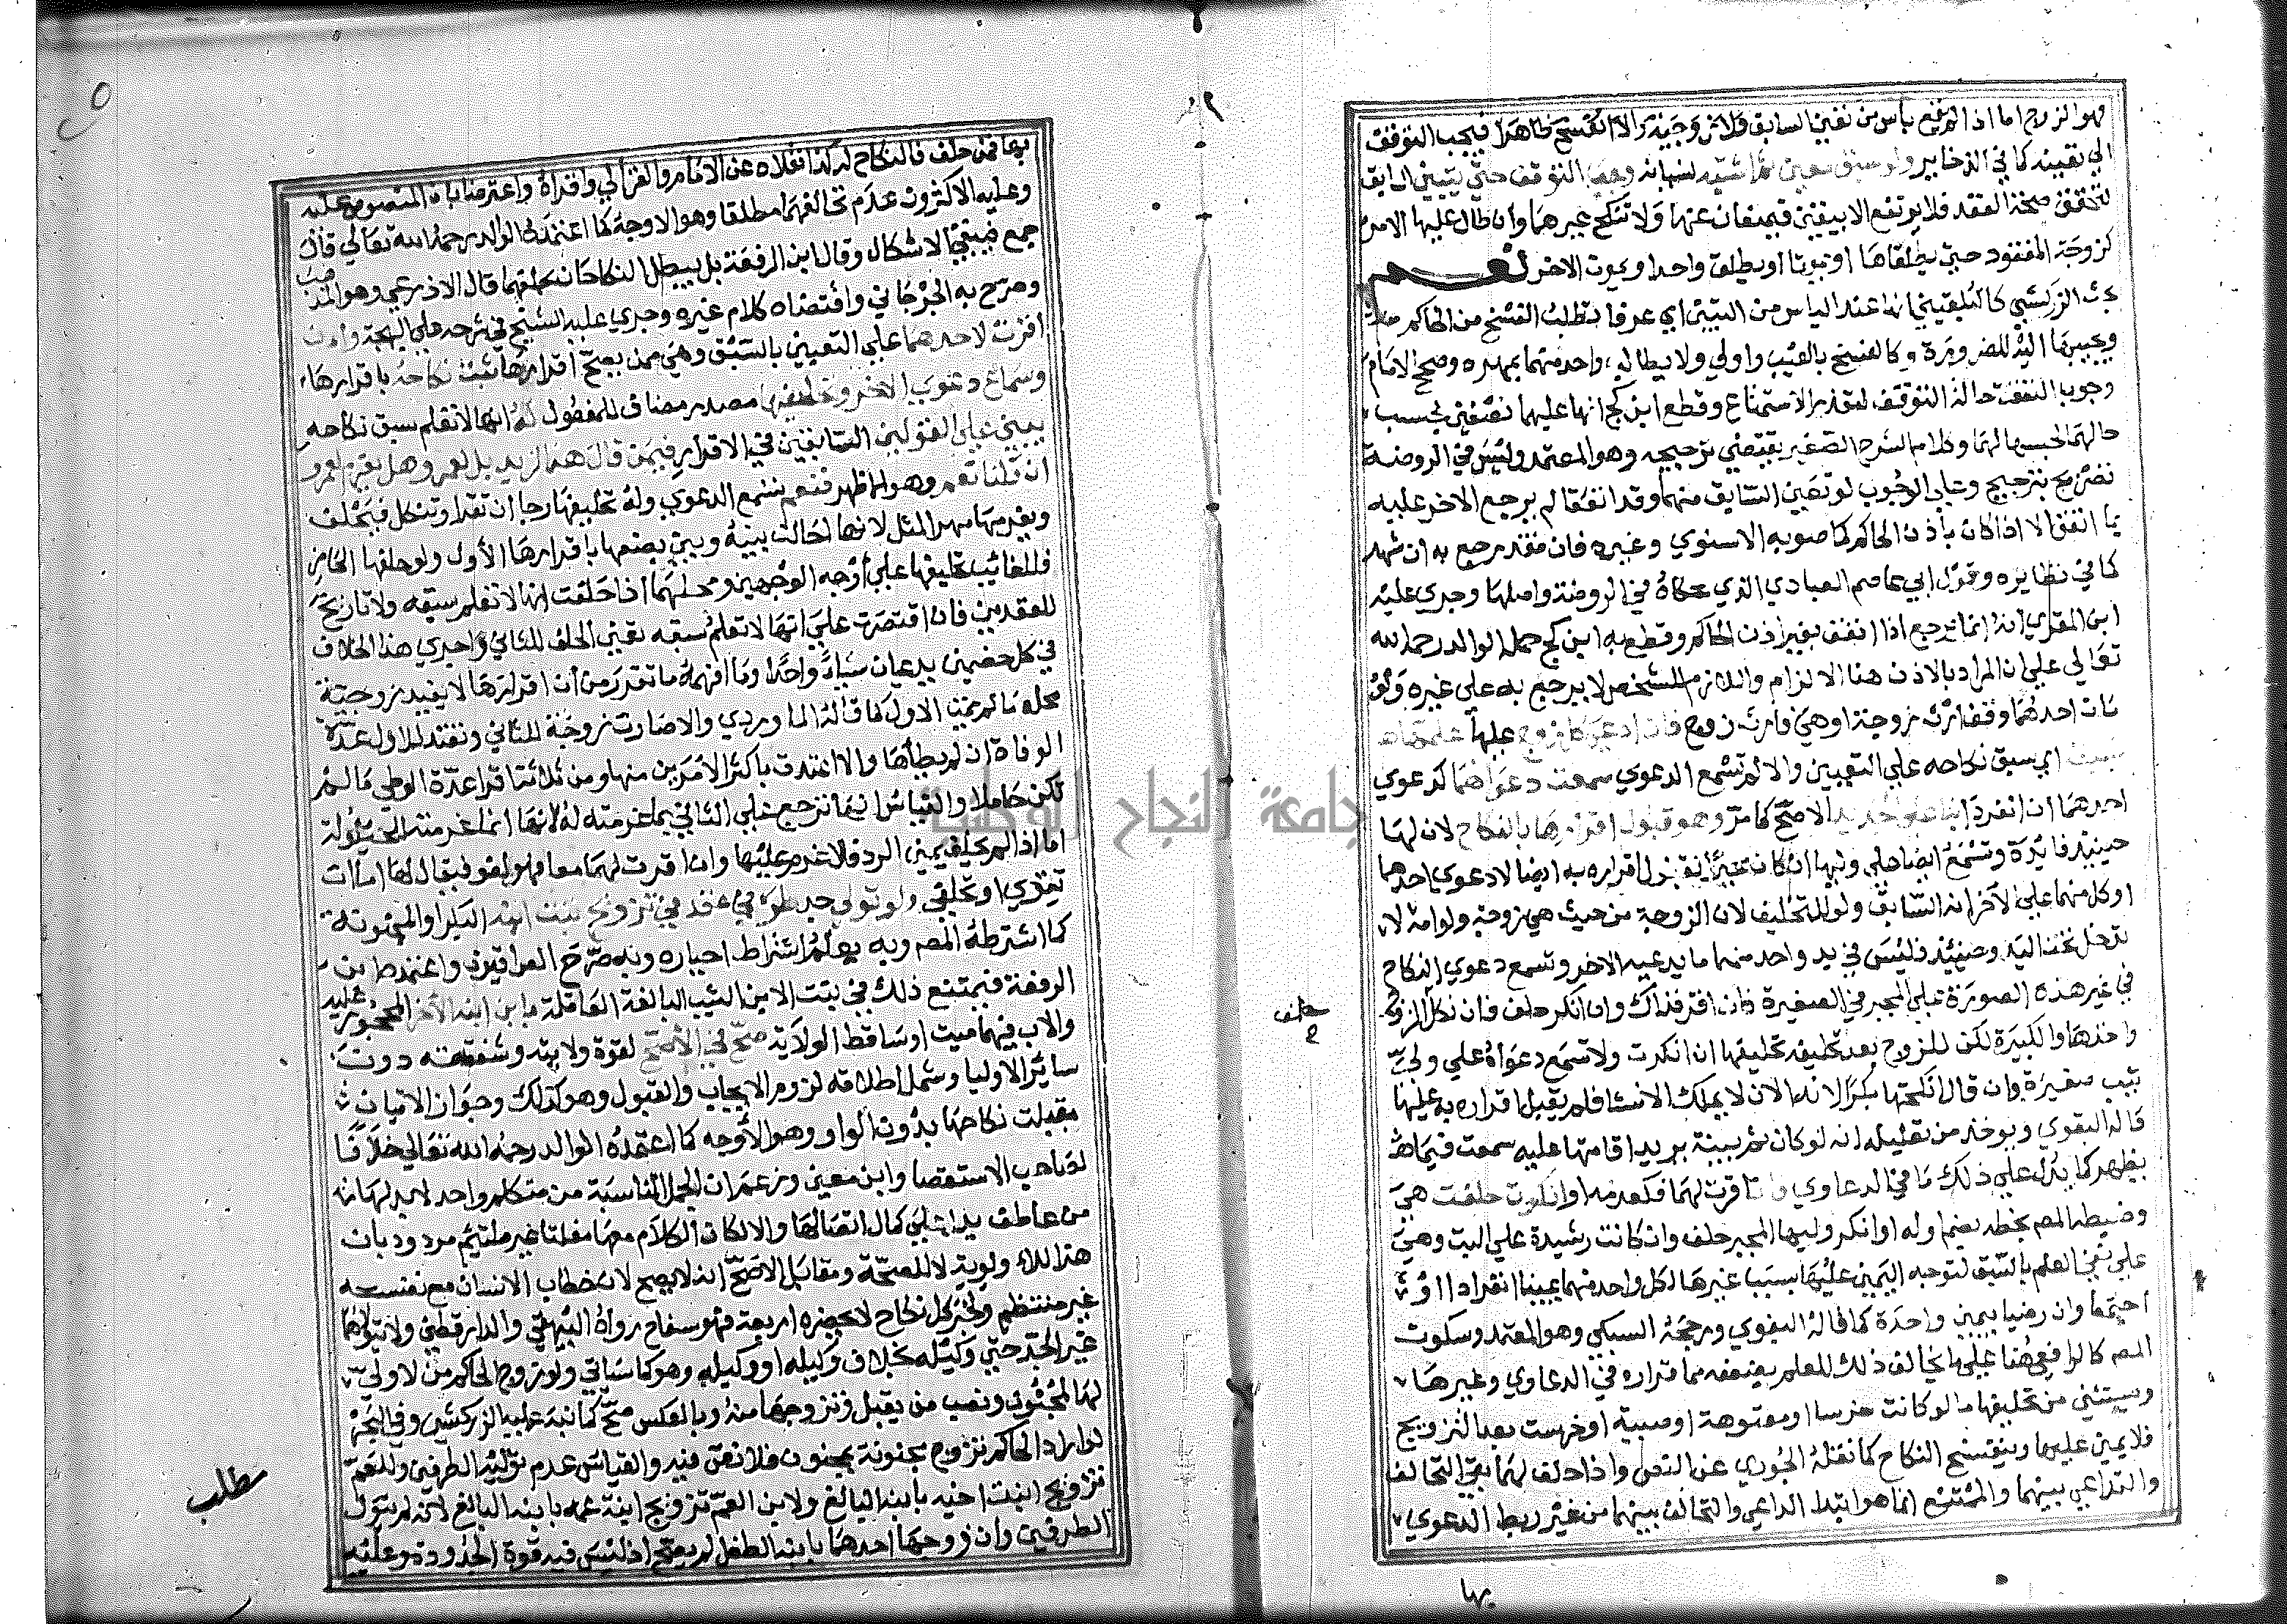 فهو الزوج اما اذا لم يقع يأس من تعين السابق فلا يثن وجبنه والا انفسخ ظاهرا فيجب التوقف
الي تعينه كما في الذخاير ولو سبق معين ثم اشتبه لنسيانه وجب التوقف حتي يتبين السابق
لتحقق صحة العقد فلا يرتفع الا بيقين فيمتنعان عنها ولا تنكح غيرهما وان طال عليها الامر
كزوجة المفقود حتي يطلقاها او يموتا او يطلق واحد ويموت الاخر نعم
بحث الزركشي كالبلقيني انه عند الياس من التبين اي عرفا تطلب الفسخ من الحاكم
ويجيبها اليه للضرورة وكالفسخ بالعيب واولي ولا يطالب واحد منهما بمهر وصحح الامام
وجوب النفقة حالة التوقف لتعذر الاستمتاع وقطع ابن كج انها عليهما نصفين بحسب
حالهما لحبسها لهما وكلام الشرح الصغير يقتضي ترجيحه وهو المعتمد وليس في الروضة
تصريح بترجيح وعلي الوجوب لو تعين السابق منهما وقد انفقا لم يرجع الاخر عليه
بما انفق الا اذا كان باذن الحاكم كما صوبه الاسنوي وغيره فان فقد رجع به ان شهد
كما في نظايره وقول ابي عاصم العبادي الذي حكاه في الروضة واصلها وجري عليه
ابن المقري انه انما يرجع اذا انفق بغير اذن الحاكم وقطع به ابن كج حمله الوالد رحمه الله
تعالي علي ان المراد بالاذن هنا الالزام واللازم للشخص لا يرجع به علي غيره ولو
مات احدهما وقف ارث زوجة او هي فارث زوج فان ادعي كل زوج عليها علمها
بسبقه اي سبق نكاحه علي التعيين والا لم تسمع الدعوي سمعت دعواهما كدعوي
احدهما ان انفرد بنا علي الجديد الاصح كما مر وهو قبول اقرارها بالنكاح لان لها
حينيذ فايدة وتسمع ايضا علي وليها ان كان مجبرا لقبول اقراره به ايضا لا دعوي احدهما
او كل منهما علي الاخر انه السابق ولو للتحليف لان الزوجة من حيث هي زوجة ولو امة لا
تدخل تحت اليد وحينيذ فليس في يد واحد منهما ما يدعيه الاخر وتسمع دعوي النكاح
في غير هذه الصورة علي المجبر في الصغيرة فان اقر فذاك وان انكر حلف فان نكل الزوج
حلف
واخذها والكبيرة لكن للزوج بعد تحليفه تحليفها ان انكرت ولا تسمع دعواه علي ولي
ثيب صغيرة وان قال انكحتها بكرا لانه الان لا يملك الانشا فلم يقبل اقراره به عليها
قاله البغوي ويوخذ من تعليله انه لو كان ثم بينة يريد اقامتها عليه سمعت فيما
يظهر كما يدل علي ذلك ما في الدعاوي فان اقرت لهما فكعدمه او انكرت حلفت هي
وضبطه المص بخطه بضم اوله او انكر وليها المجبر حلف وان كانت رشيدة علي البت وهي
علي نفي العلم بالسبق لتوجه اليمين عليها بسبب غيرها لكل واحد منهما يمينا انفردا او
اجتمعا وان رضيا بيمين واحدة كما قاله البغوي ورجحه السبكي وهو المعتمد وسكوت
المص كالرافعي هنا علي ما يخالف ذلك للعلم بضعفه مما قراره في الدعاوي وغيرها
ويستثني من تحليفها ما لو كانت خرسا او معتوهة او صبية او خرست بعد التزويج
فلا يمين عليها وينفسخ النكاح كما نقله الجوري عن النص واذا حلف لهما بقي التحالف
والتداعي بينهما والممتنع انما هو ابتدا التداعي والتحالف بينهما من غير ربط الدعوي
بها
بها فمن حلف فالنكاح له كذا نقلاه عن الامام والغزالي واقراه واعترضا بان المنصوص عليه
وعليه الاكثرون عدم تحالفهما مطلقا وهو الاوجه كما اعتمده الوالد رحمه الله تعالي قال
جمع فيبقي الاشكال وقال ابن الرفعة بل يبطل النكاحان بحلفهما قال الاذرعي وهو المذهب
وصرح به الجرجاني واقتضاه كلام غيره وجري عليه الشيخ في شرحه علي البهجة وان
اقرت لاحدهما علي التعيين بالسبق وهي ممن يصح اقرارها ثبت نكاحه باقرارها
وسماع دعوي الاخر وتحليفها مصدر مضاف للمفعول له انها لا تعلم سبق نكاحه
يبني علي القولين السابقين في الاقرار فيمن قال هذا لزيد بل لعمرو هل يغرم لعمرو
ان قلنا نعم وهو الاظهر فنعم تسمع الدعوي وله تحليفها رجا ان تقر او تنكل فيحلف
ويغرمها مهر المثل لانها احالت بينه وبين بضعها باقرارها الاول ولو حلفها الحاضر
فللغايب تحليفها علي اوجه الوجهين ومحلهما اذا حلفت انها لا تعلم سبقه ولا تاريخ
للعقدين فان اقتصرت علي انها لا تعلم سبقه تعين الحلف للثاني واجري هذا الخلاف
في كل خصمين يدعيان شيا واحدا وما افهمه ما تقرر من ان اقرارها لا يفيد زوجية
محله ما لم يمت الاول كما قاله الماوردي والا صارت زوجة للثاني وتعتد للاول عدة
الوفاة ان لم يطاها والا اعتدت باكثر الامرين منها ومن ثلاثة اقرا عدة الوطي ما لم
تكن حاملا والقياس انها ترجع علي الثاني بما غرمته له لانها انما غرمته للحيلولة
اما اذا لم يحلف يمين الرد فلا غرم عليها وان اقرت لهما معا فهو لغو فيقال لها اما ان
تقري او تحلفي ولو تولي جد طرفي عقد في تزويج بنت ابنه البكر او المجنونة
كما اشترطه المص وبه يعلم اشتراط اجباره وبه صرح العراقيون واعتمده ابن
الرفعة فيمتنع ذلك في بنت الابن الثيب البالغة العاقلة بابن ابنه الاخر المحجور عليه
والاب فيهما ميت او ساقط الولاية صح في الاصح لقوة ولايته وشفقته دون
ساير الاوليا وشمل اطلاقه لزوم الايجاب والقبول وهو كذلك وجواز الاتيان
بقبلت نكاحها بدون الواو وهو الاوجه كما اعتمده الوالد رحمه الله تعالي خلافا
لصاحب الاستقصا وابن معين وزعم ان الجمل المتناسبة من متكلم واحد لا بد لها
من عاطف يدل علي كمال اتصالها والا لكان الكلام معها مفلتا غير ملتيم مردود بان
هذا للاولوية لا للصحة ومقابل الاصح انه لا يصح لان خطاب الانسان مع نفسه
غير منتظم ولخبر كل نكاح لا يحضره اربعة فهو سفاح رواه البيهقي والدارقطني ولا يتولاهما
غير الجد حتي وكيله بخلاف وكيليه او وكيله وهو كما سياتي ولو زوج الحاكم من لا ولي
لها لمجنون ونصب من يقبل ونزوجها منه وبالعكس صح كما نبه عليه الزركشي وفي البحر
لو اراد الحاكم تزويج مجنونة بمجنون فلا نص فيه والقياس عدم توليه الطرفين وللعم
تزويج ابنت اخيه بابنه البالغ ولابن العم تزويج ابنة عمه بابنه البالغ لانه لم يتول
الطرفين وان زوجها احدهما بابنه الطفل لم يصح اذ ليس فيه قوة الجدودة وعليه
مطلب
جامعة النجاح الوطنية